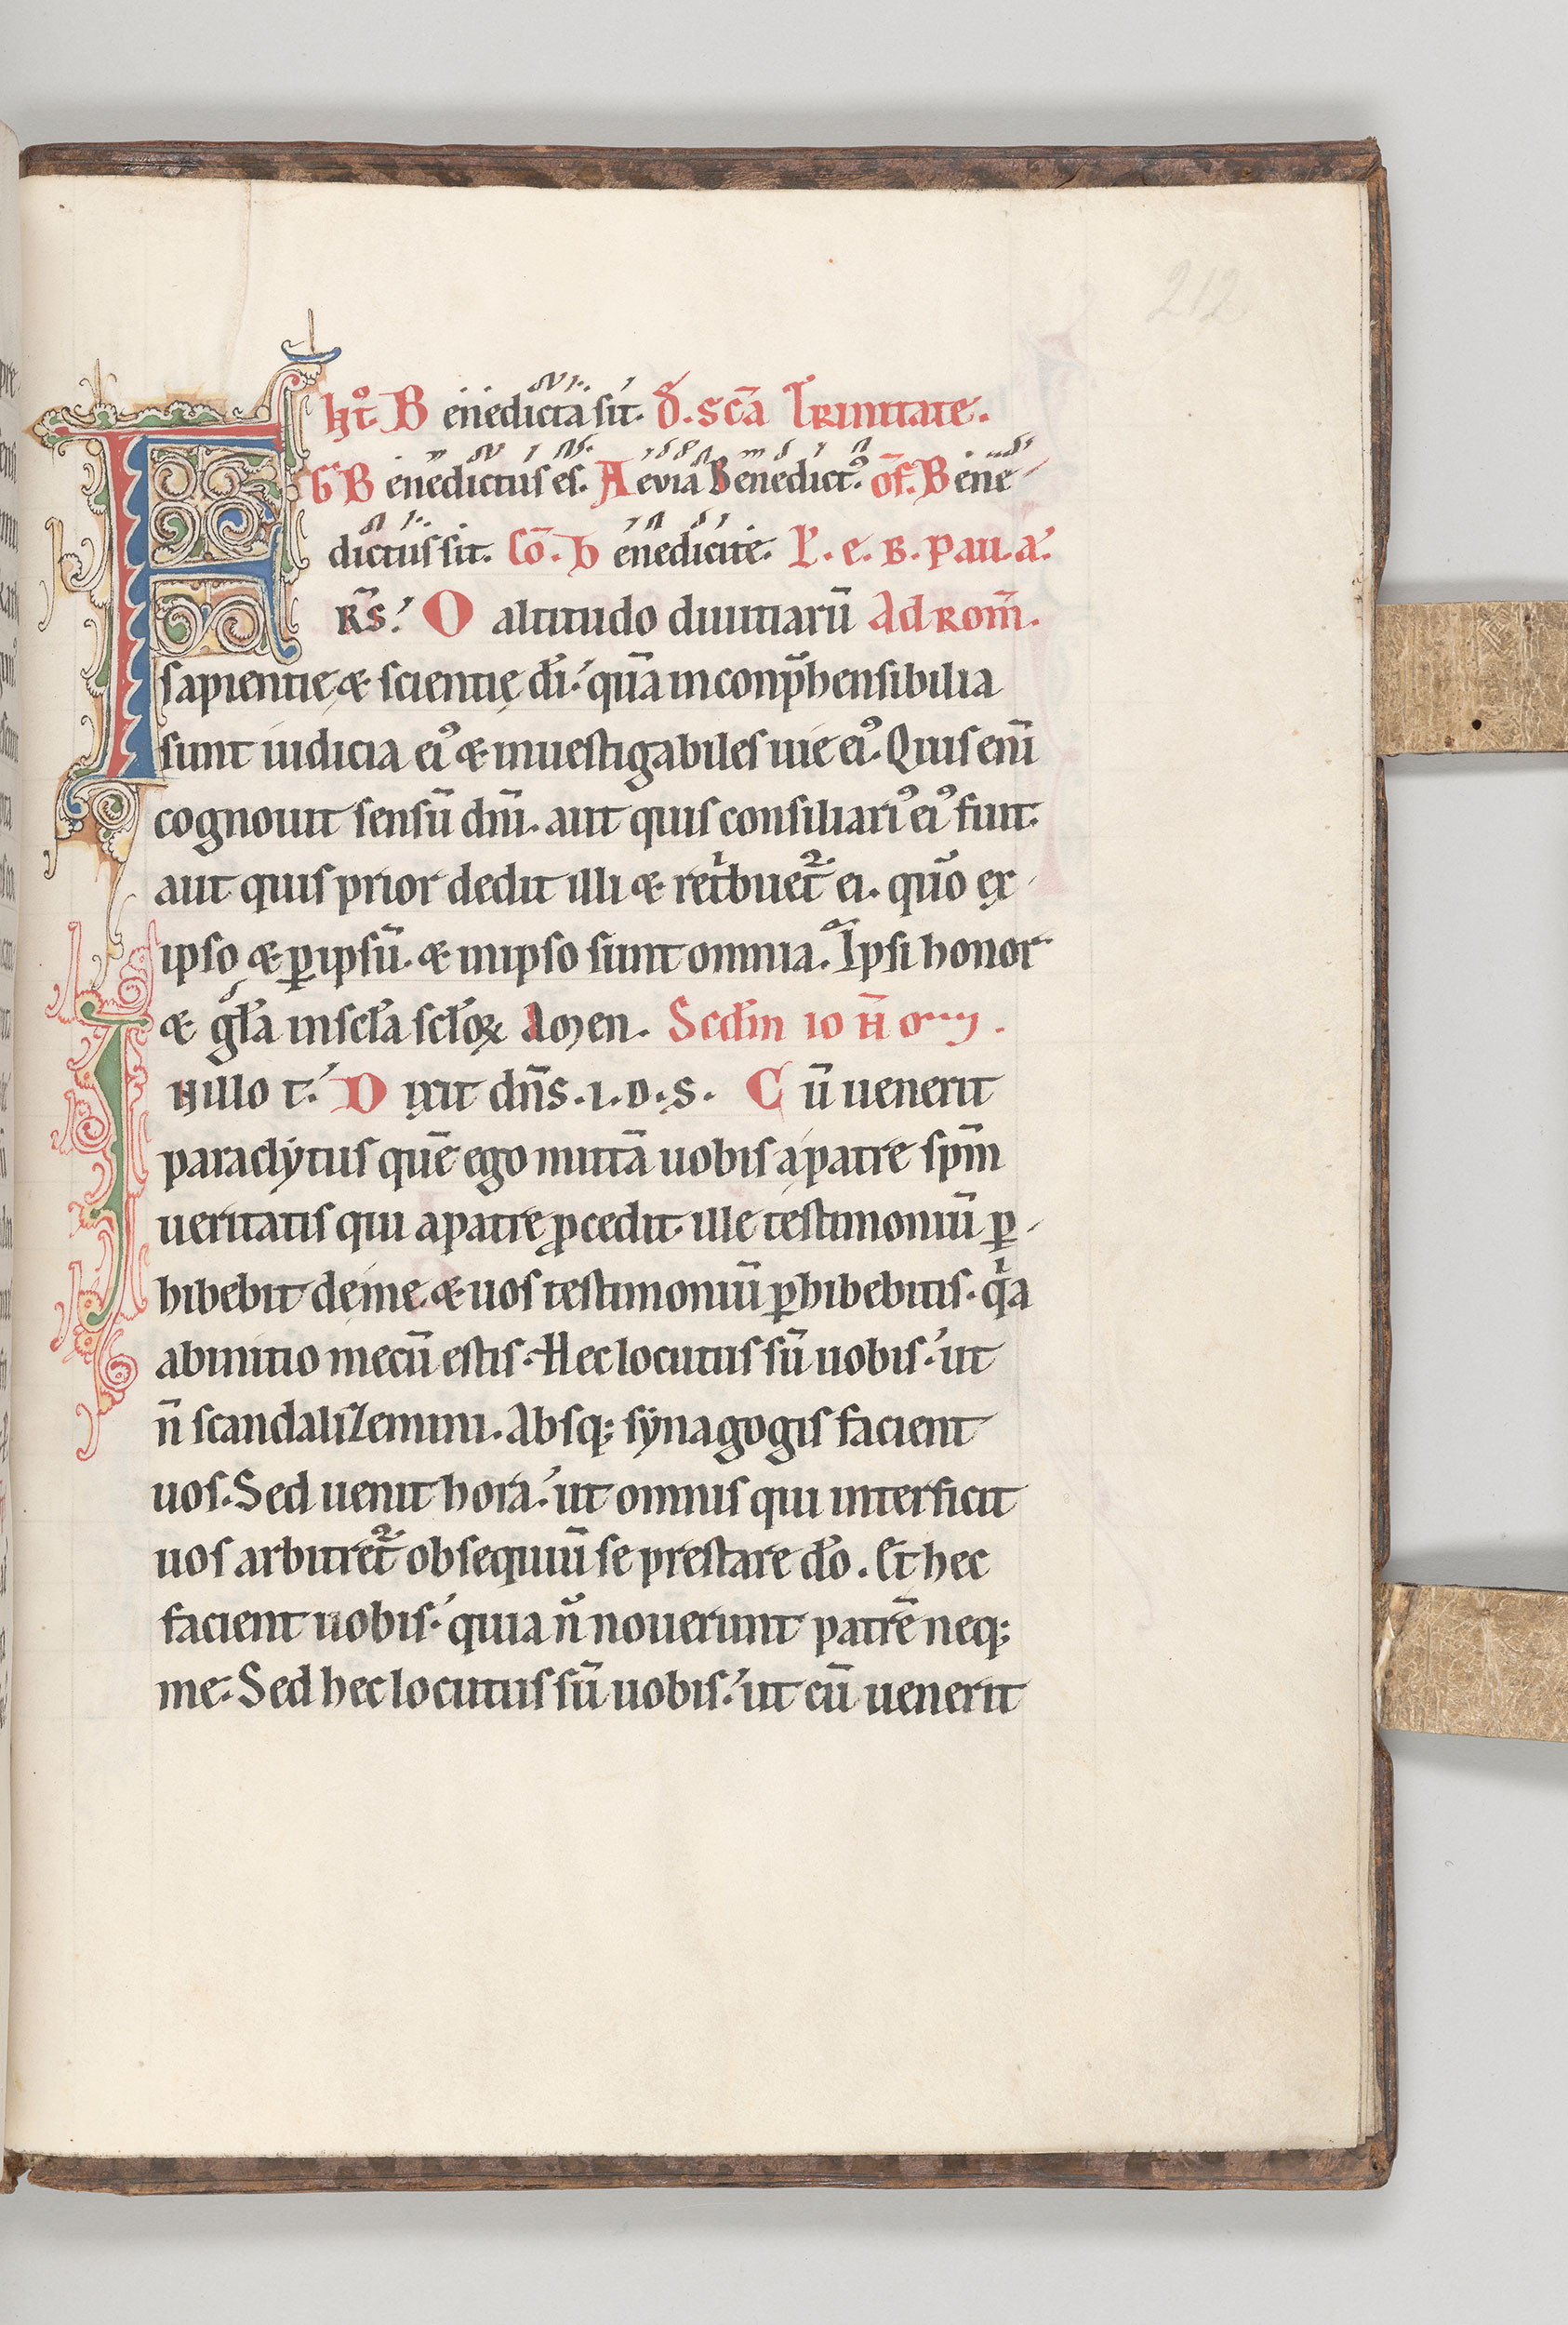 212
Int̊. Benedicta sit. D̄. sc̄a Trinitate.
G͞. Benedictus es. Aevia Benedict᾿. of̄. Bene-
dictus sit. Cō. Benedicite. L̄. e. B. Pau. a.
FRS̄. O altitudo diuitiarū Ad Rom̄.
sapientię & scientię dī. quā inconp̄hensibilia
sunt iudicia ei᾿ & inuestigabiles uie ei᾿. Quis eni̅
cognouit sensū dn̄i. aut quis consiliari᾿ ei᾿ fuit.
aut quis prior dedit illi & retͥbuet̄ ei. qūo ex
ipso & ꝑ ipsū. & in ipso sunt omnia. Ipsi honor
& gl̄a in scl̄a scl̄oꝝ Amen. Scd̄m ioh̄om̄.
IN illo t. Dixit dn̄s. i. d. s. Cū uenerit
paraclytus quē ego mittā uobis a patre sp̄m
ueritatis qui a patre ꝓcedit. ille testimoniū ꝑ-
hibebit de me. & uos testimoniū ꝑhibebitis. qͥa
ab initio mecū estis. Hec locutus sū uobis. ut
n̄ scandalizemini. Absq; synagogis facient
uos. Sed uenit hora. ut omnis qui interficit
uos arbitret̄ obsequiū se prestare dō. Et hec
facient uobis. quia n̄ nouerunt patrē neq;
me. Sed hec locutus sū uobis. ut cū uenerit